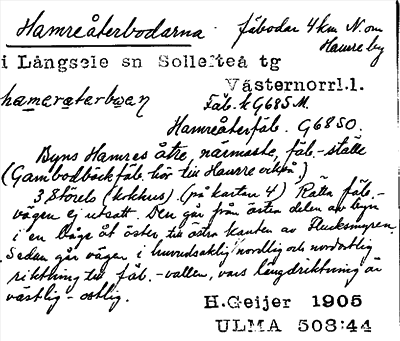 Hamreåterbodarna. fäbodar 4 km N. om
Hamre by
i Långsele sn Sollefteå tg
Västernorrl.l.
hameråterboan
Fäb. k G685M.
Hamreåterfäb. G6850.
Byns Hamres åtre, närmaste, fäb.-ställe
(Gambodbäckfäb. hör till Hamre också.)
3 Störels (kokhus) (på kartan 4) Rätta fäb.-
vägen ej utsatt. Den går från östra delen av byn
i en båge åt öster till östra kanten av Flucksmyren.
Sedan går vägen i huvudsaklig nordlig och nordostlig
riktning till fäb.-vallen, vars längdriktning är
västlig-ostlig.
H.Geijer 1905
ULMA 503:44